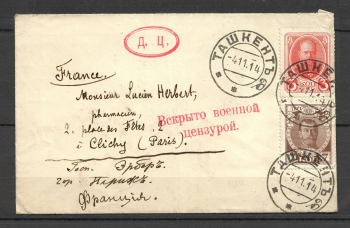 Д. Ц.
ТАШКЕНТЪ
-4.11.14
France.
Monsieur Lucien Herbert,
pharmacien,
2. place des Fêtes, 2
à Clichy (Paris).
Вскрыто военной
цензурой.
Госп. Эрберъ.
гор. Парижъ.
Франція.
ТАШКЕНТЪ
-4.11.14
ТАШКЕНТЪ
-4.11.14